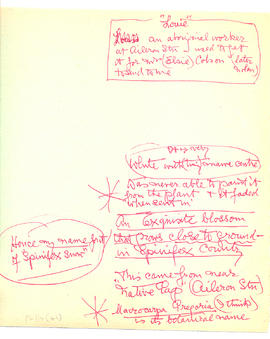 "Louie"
an aboriginal worker
at Aileron Stn - used to get
it for Mrs (Elsie) Colson (later
to send to me
White with tiny centre
Was never able to paint it
from the plant & it faded
when sent in
An Exquisite blossom
that grows close to ground
in Spinifex Country
Hence my name for it
"Spinifex Snow"
This came from near
Native Gap (Aileron Stn)
Macrocarpa Gregoria (I think)
is its botanical name